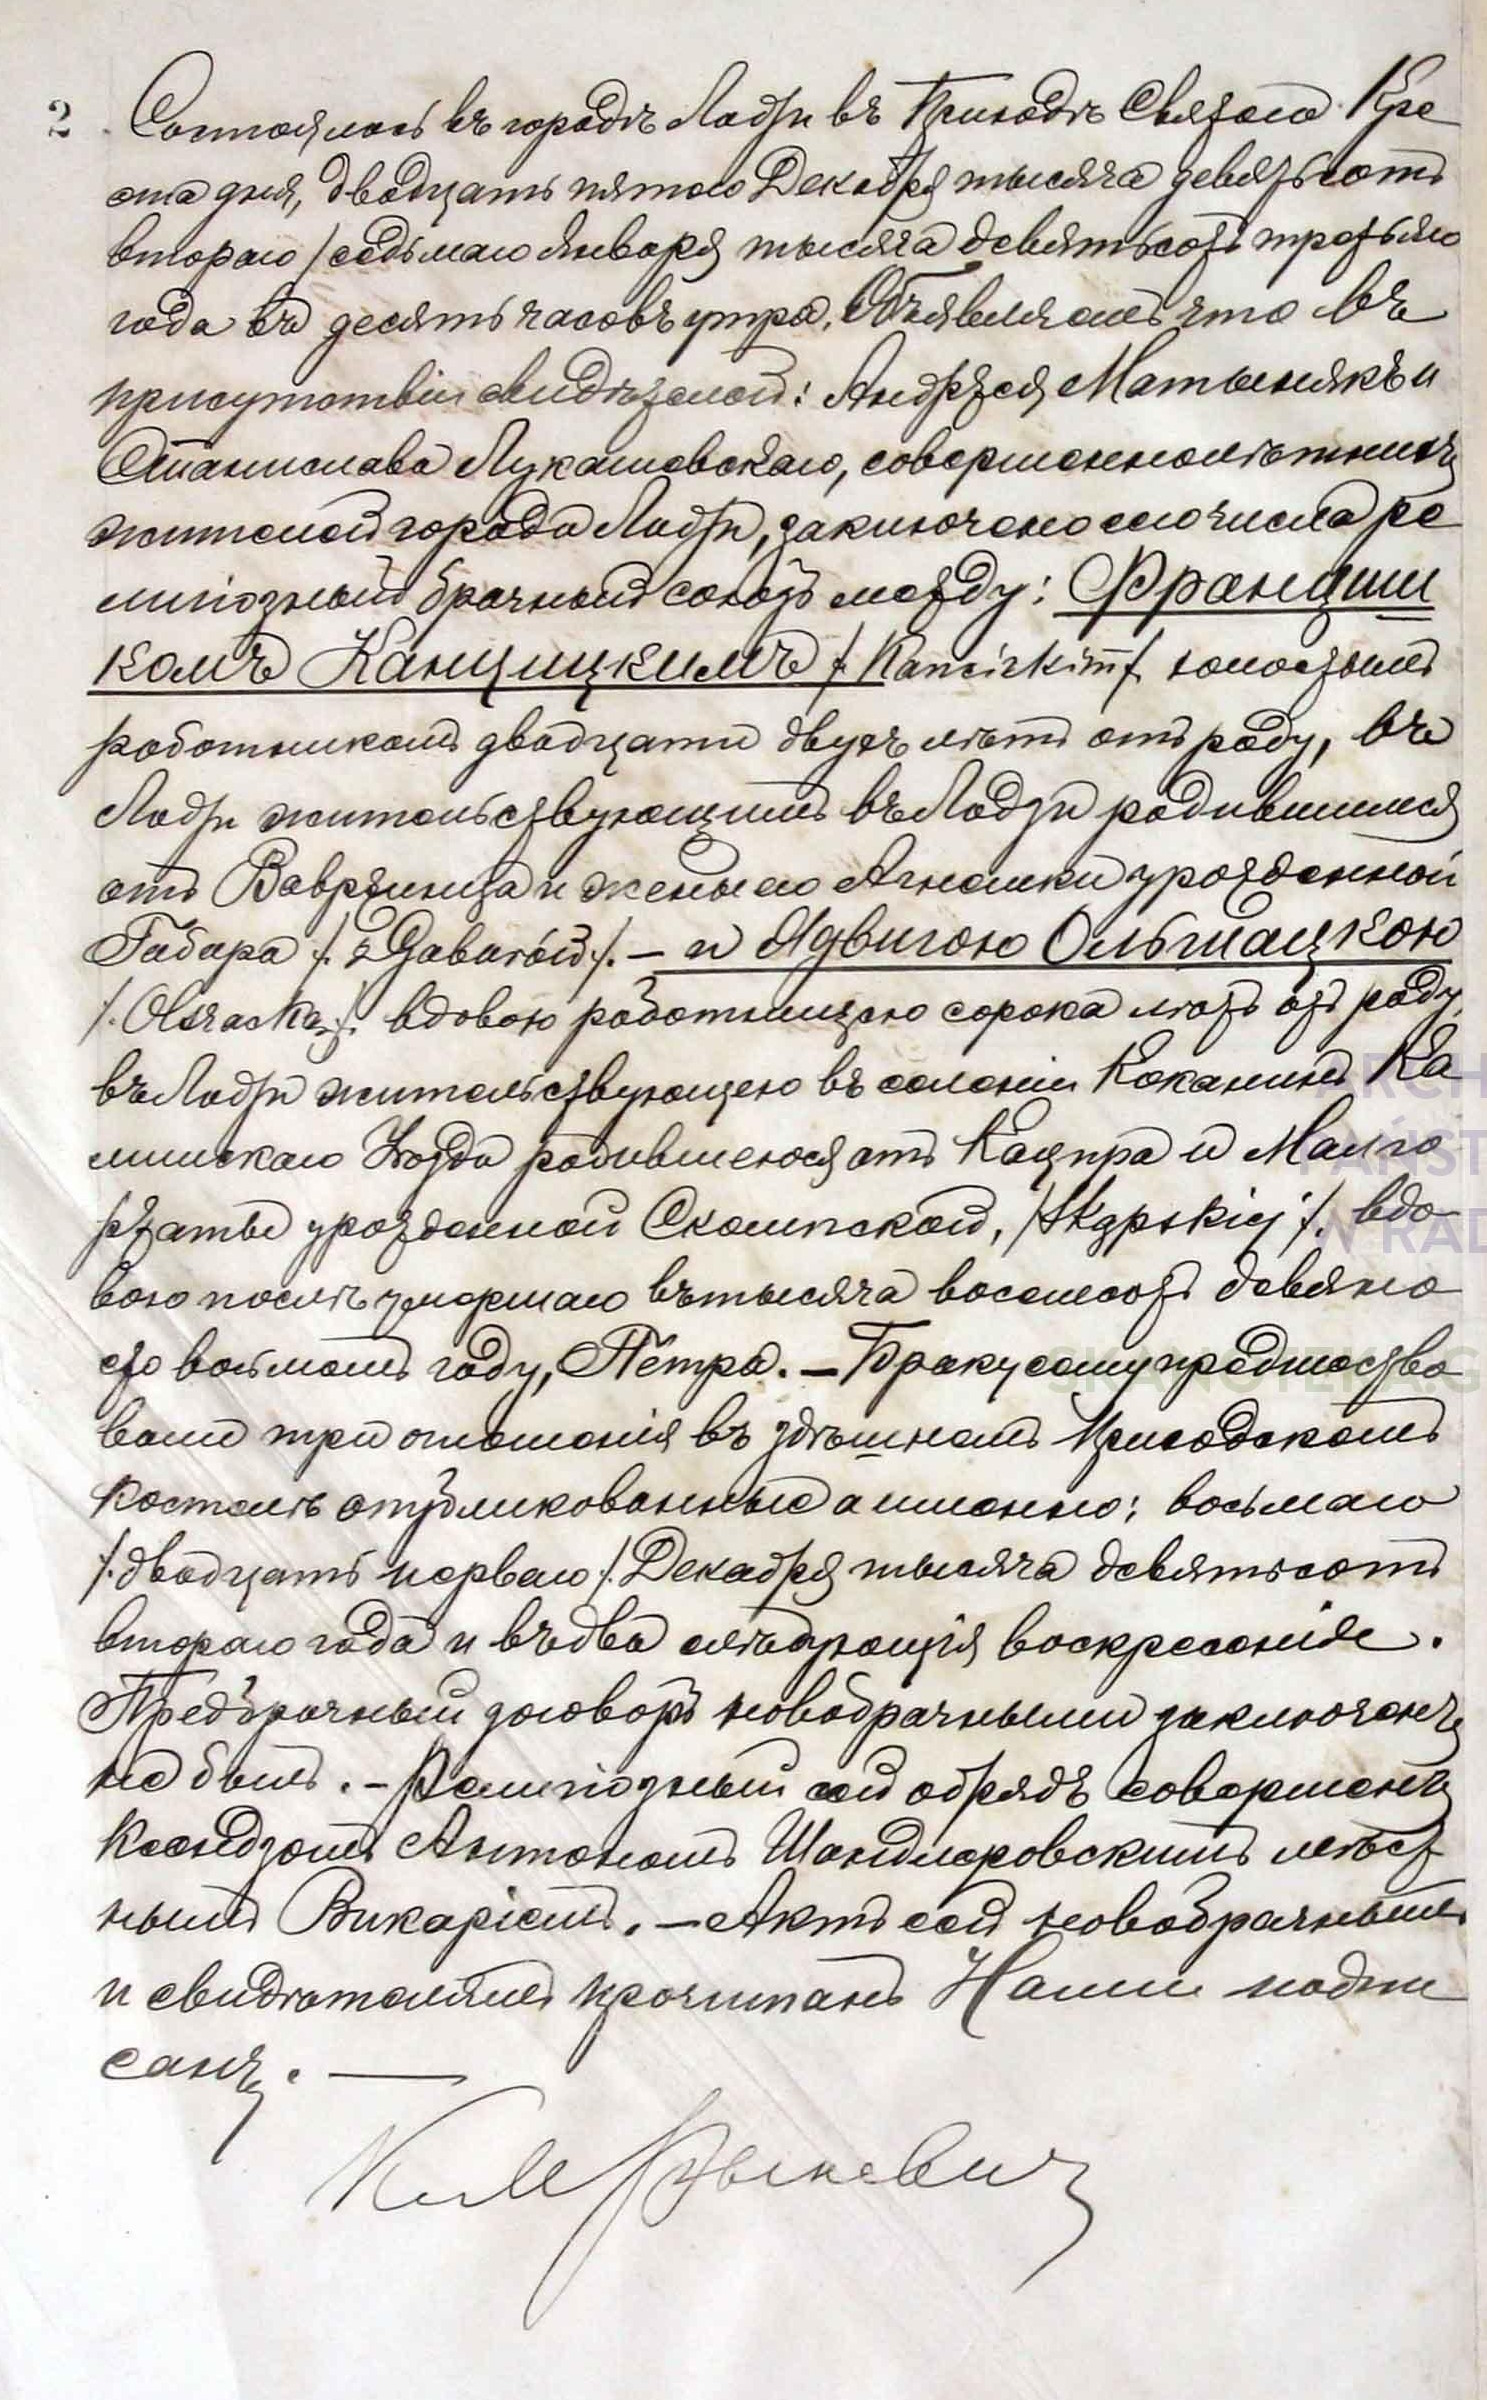 2 Состоялось въ городѣ Лодзи въ Приходѣ Святого Кре
ста дня, двадцать пятого Декабря тысяча девятьсотъ
второго /седьмого Января тысяча девятьсотъ третьяго
года въ десять часовъ утра. Объявляемъ что въ
присутствіи свидѣтелей: Андржея Матынякъ и
Станислава Лукашевскаго, совершеннолѣтнихъ
жителей города Лодзи, заключено сего числа ре
лигіозный брачный союзъ между: Францишк
комъ Канцицкимъ /:Kancickim/: холостымъ
работникомъ двадцати двухъ лѣтъ отъ роду, въ
Лодзи жительствующимъ въ Лодзи родившимся
отъ Вавржинца и жены его Агнешки урожденной
Габара /:z Gabarów:/. – и Ядвигою Ольшацкою
/:Olszacką:/. вдовою работницею сорока лѣтъ отъ роду,
въ Лодзи жительствующею въ селеніи Коканинъ Ка
лишскаго Уѣзда родившеюся отъ Кацпра и Малго
ржаты урожденной Скомпской, /Skąpskiej/. вдо
вою послѣ умершаго въ тысяча восемсотъ девяно
сто восьмомъ году, Петра. – Браку сему предшество
вали три оглашенія въ здѣшнемъ Приходскомъ
костелѣ опубликованные а именно: восьмаго
/:двадцать перваго/: Декабря тысяча девятьсотъ
второго года и въ два слѣдующія воскресенія.
Предбрачный договоръ новобрачными заключенъ
не былъ. – Религіозный сей обрядъ совершенъ
Ксендзомъ Антономъ Шандлеровскимъ мѣст
нымъ Викаріемъ. – Актъ сей новобрачнымъ
и свидѣтелямъ прочитанъ Нами подпи
санъ. —